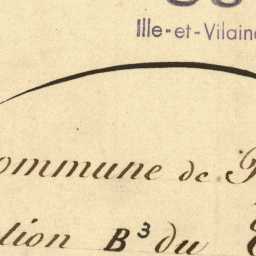 Ille-et-Vilaine
ommune de
tion B³ du